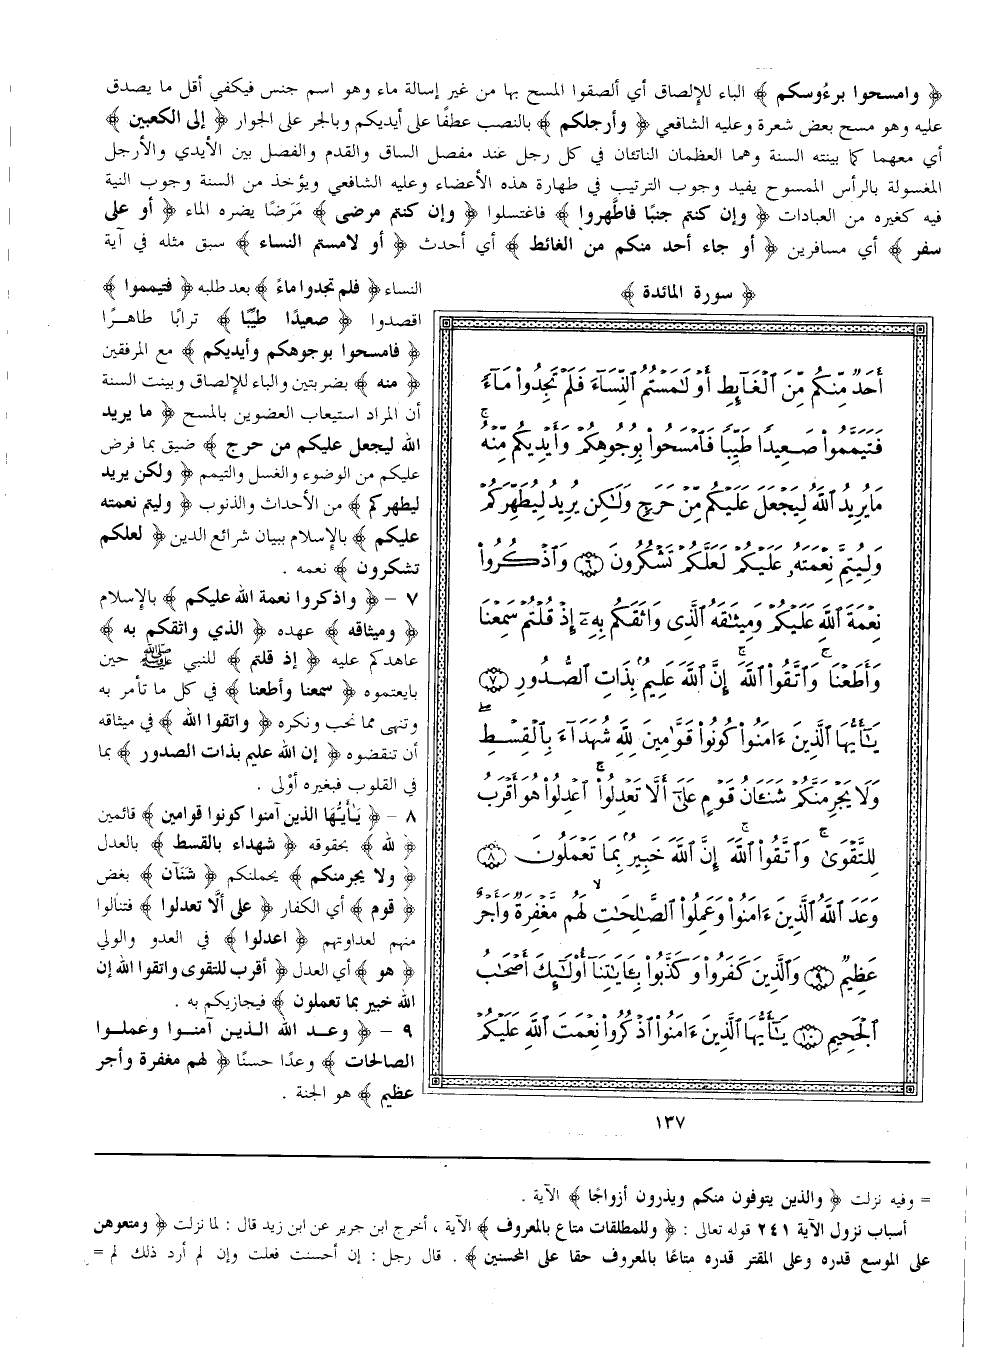 ﴿ وامسحوا برءُوسكم ﴾ الباء للإلصاق أي ألصقوا المسح بها من غير إسالة ماء وهو اسم جنس فيكفي أقل ما يصدق
عليه وهو مسح بعض شعرة وعليه الشافعي ﴿ وأرجلكم ﴾ بالنصب عطفًا على أيديكم وبالجر على الجوار ﴿ إلى الكعبين ﴾
أي معهما كما بينته السنة وهما العظمان الناتئان في كل رجل عند مفصل الساق والقدم والفصل بين الأيدي والأرجل
المغسولة بالرأس الممسوح يفيد وجوب الترتيب في طهارة هذه الأعضاء وعليه الشافعي ويؤخذ من السنة وجوب النية
فيه كغيره من العبادات ﴿ وإن كنتم جنبًا فاطَّهروا ﴾ فاغتسلوا ﴿ وإن كنتم مرضى ﴾ مَرَضًا يضره الماء ﴿ أو على
سفر ﴾ أي مسافرين ﴿ أو جاء أحد منكم من الغائط ﴾ أي أحدث ﴿ أو لامستم النساء ﴾ سبق مثله في آية
النساء ﴿ فلم تجدوا ماءً ﴾ بعد طلبه ﴿ فتيمموا ﴾
اقصدوا ﴿ صعيدًا طيِّبًا ﴾ ترابًا طاهرًا
﴿ فامسحوا بوجوهكم وأيديكم ﴾ مع المرفقين
﴿ منه ﴾ بضربتين والباء للإلصاق وبينت السنة
أن المراد استيعاب العضوين بالمسح ﴿ ما يريد
الله ليجعل عليكم من حرج ﴾ ضيق بما فرض
عليكم من الوضوء والغسل والتيمم ﴿ ولكن يريد
ليطهركم ﴾ من الأحداث والذنوب ﴿ وليتم نعمته
عليكم ﴾ بالإسلام ببيان شرائع الدين ﴿ لعلكم
تشكرون ﴾ نعمه .
٧ - ﴿ واذكروا نعمة الله عليكم ﴾ بالإسلام
﴿ وميثاقه ﴾ عهده ﴿ الذي واثقكم به ﴾
عاهدكم عليه ﴿ إذ قلتم ﴾ للنبي ﷺ حين
بايعتموه ﴿ سمعنا وأطعنا ﴾ في كل ما تأمر به
وتنهى مما نحب ونكره ﴿ واتقوا الله ﴾ في ميثاقه
أن تنقضوه ﴿ إن الله عليم بذات الصدور ﴾ بما
في القلوب فبغيره أوْلى .
٨ - ﴿ يَأَيُّهَا الذين آمنوا كونوا قوامين ﴾ قائمين
﴿ لله ﴾ بحقوقه ﴿ شهداء بالقسط ﴾ بالعدل
﴿ ولا يجرمنكم ﴾ يحملنكم ﴿ شَنَآن ﴾ بغض
﴿ قوم ﴾ أي الكفار ﴿ على ألَّا تعدلوا ﴾ فتنالوا
منهم لعداوتهم ﴿ اعدلوا ﴾ في العدو والولي
﴿ هو ﴾ أي العدل ﴿ أقرب للتقوى واتقوا الله إن
الله خبير بما تعملون ﴾ فيجازيكم به .
٩ - ﴿ وعد الله الذين آمنوا وعملوا
الصالحات ﴾ وعدًا حسنًا ﴿ لهم مغفرة وأجر
عظيم ﴾ هو الجنة .
﴿ سورة المائدة ﴾
أَحَدٌ مِّنكُم مِّنَ ٱلْغَآئِطِ أَوْ لَـٰمَسْتُمُ ٱلنِّسَآءَ فَلَمْ تَجِدُوا۟ مَآءً
فَتَيَمَّمُوا۟ صَعِيدًا طَيِّبًا فَٱمْسَحُوا۟ بِوُجُوهِكُمْ وَأَيْدِيكُم مِّنْهُ ۚ
مَا يُرِيدُ ٱللَّهُ لِيَجْعَلَ عَلَيْكُم مِّنْ حَرَجٍ وَلَـٰكِن يُرِيدُ لِيُطَهِّرَكُمْ
وَلِيُتِمَّ نِعْمَتَهُۥ عَلَيْكُمْ لَعَلَّكُمْ تَشْكُرُونَ ٦ وَٱذْكُرُوا۟
نِعْمَةَ ٱللَّهِ عَلَيْكُمْ وَمِيثَـٰقَهُ ٱلَّذِى وَاثَقَكُم بِهِۦٓ إِذْ قُلْتُمْ سَمِعْنَا
وَأَطَعْنَا ۖ وَٱتَّقُوا۟ ٱللَّهَ ۚ إِنَّ ٱللَّهَ عَلِيمٌۢ بِذَاتِ ٱلصُّدُورِ ٧
يَـٰٓأَيُّهَا ٱلَّذِينَ ءَامَنُوا۟ كُونُوا۟ قَوَّٰمِينَ لِلَّهِ شُهَدَآءَ بِٱلْقِسْطِ ۖ
وَلَا يَجْرِمَنَّكُمْ شَنَـَٔانُ قَوْمٍ عَلَىٰٓ أَلَّا تَعْدِلُوا۟ ۚ ٱعْدِلُوا۟ هُوَ أَقْرَبُ
لِلتَّقْوَىٰ ۖ وَٱتَّقُوا۟ ٱللَّهَ ۚ إِنَّ ٱللَّهَ خَبِيرٌۢ بِمَا تَعْمَلُونَ ٨
وَعَدَ ٱللَّهُ ٱلَّذِينَ ءَامَنُوا۟ وَعَمِلُوا۟ ٱلصَّـٰلِحَـٰتِ ۙ لَهُم مَّغْفِرَةٌ وَأَجْرٌ
عَظِيمٌ ٩ وَٱلَّذِينَ كَفَرُوا۟ وَكَذَّبُوا۟ بِـَٔايَـٰتِنَآ أُو۟لَـٰٓئِكَ أَصْحَـٰبُ
ٱلْجَحِيمِ ١٠ يَـٰٓأَيُّهَا ٱلَّذِينَ ءَامَنُوا۟ ٱذْكُرُوا۟ نِعْمَتَ ٱللَّهِ عَلَيْكُمْ
١٣٧
= وفيه نزلت ﴿ والذين يتوفون منكم ويذرون أزواجًا ﴾ الآية .
أسباب نزول الآية ٢٤١ قوله تعالى : ﴿ وللمطلقات متاع بالمعروف ﴾ الآية ، أخرج ابن جرير عن ابن زيد قال : لما نزلت ﴿ ومتعوهن
على الموسع قدره وعلى المقتر قدره متاعًا بالمعروف حقا على المحسنين ﴾ . قال رجل : إن أحسنت فعلت وإن لم أرد ذلك لم =